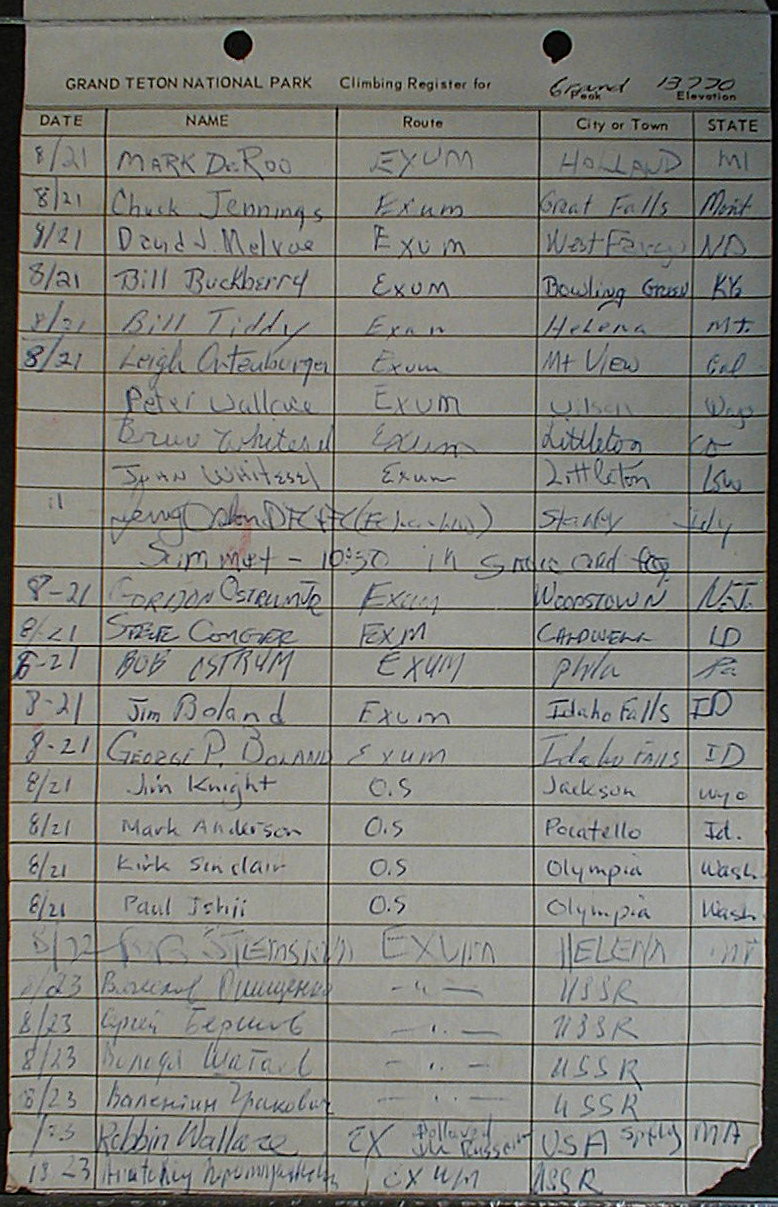 GRAND TETON NATIONAL PARK Climbing Register for Grand 13770
Peak Elevation
DATE NAME Route City or Town STATE
8/21 MARK DEROO EXUM HOLLAND MI
8/21 Chuck Jennings Exum Great Falls Mont
8/21 David J. Exum West ND
8/21 Bill Buckberry EXUM Bowling Green KY
8/21 Bill Tiddy Exum Helena MT.
8/21 Leigh Ortenburger Exum Mt View Cal
Peter Wallace EXUM Wilson Wyo
Whitesel Exum Littleton CO
JOHN WHITESEL Exum Littleton
11 Stanley
Summet - 10:30 in
8-21 GORDON OSTRUM JR EXUM WOODSTOWN N.J.
8/21 STEVE EXM CALDWELL ID
8-21 BOB OSTRUM EXUM phila Pa
8-21 Jim Boland Exum Idaho Falls ID
8-21 GEORGE P. BOLAND Exum Idaho Falls ID
8/21 Jim Knight O.S Jackson wyo
8/21 Mark Anderson O.S Pocatello Id.
8/21 Kirk Sinclair O.S Olympia Wash
8/21 Paul Ishii O.S Olympia Wash
8/22 EXUM HELENA MT
8/23 Онищенко - " - USSR
8/23 Сергей Бершов - " - USSR
8/23 Володя Шатаев - " - USSR
8/23 Валентин Гракович - " - USSR
/23 Robbin Wallace EX followed the Russians USA MA
8 23 EXUM USSR